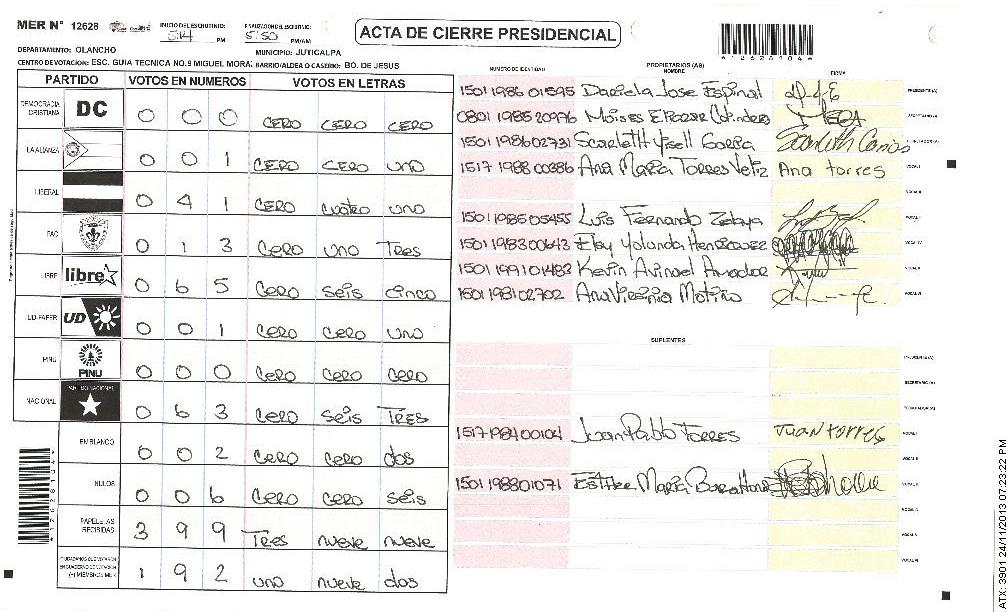 MER N° 12628 INICIO DEL ESCRUTINIO: 5:14 PM FINALIZACION DEL ESCRUTINIO: 5:50 PM/AM
ACTA DE CIERRE PRESIDENCIAL
DEPARTAMENTO: OLANCHO MUNICIPIO: JUTICALPA
CENTRO DE VOTACION: ESC. GUIA TECNICA NO.9 MIGUEL MORA BARRIO/ALDEA O CASERIO: BO. DE JESUS
PARTIDO VOTOS EN NUMEROS VOTOS EN LETRAS
DEMOCRACIA CRISTIANA DC 0 0 0 CERO CERO CERO
LA ALIANZA 0 0 1 CERO CERO UNO
LIBERAL 0 4 1 CERO cuatro uno
PAC 0 1 3 Cero UNO Tres
LIBRE libre 0 6 5 Cero Seis cinco
UD-FAPER UD 0 0 1 Cero Cero Uno
PINU PINU 0 0 0 Cero Cero Cero
NACIONAL PARTIDO NACIONAL 0 6 3 Cero Seis TRES
EN BLANCO 0 0 2 Cero Cero dos
NULOS 0 0 6 Cero Cero seis
PAPELETAS RECIBIDAS 3 9 9 Tres nueve nueve
CIUDADANOS QUE VOTARON EN CUADERNO DE VOTACION (+) MIEMBROS MER 1 9 2 uno nueve dos
NUMERO DE IDENTIDAD PROPIETARIOS (AS) NOMBRE FIRMA
1501 1986 01595 Daniela Jose Espinal PRESIDENTE (A)
0801 1985 20976 SECRETARIO (A)
1501 1986 02731 Scarleth Yisell Garcia
1517 1988 00386 Ana Maria Torres Veliz Ana torres VOCAL I
VOCAL II
1501 1985 05455 Luis Fernando Zelaya
1501 1983 00643 Elsy Yolanda Henriquez VOCAL IV
1501 1991 01483 Kevin Avinael Amador
1501 1981 02702 Ana Virginia Motiño VOCAL VI
SUPLENTES
PRESIDENTE (A)
SECRETARIO (A)
ESCRUTADOR (A)
1517 1984 00104 Juan Pablo TORRES Juan torres VOCAL I
VOCAL II
1501 1988 01071 Esther Maria Barahona
VOCAL IV
VOCAL V
VOCAL VI
ATX: 3901 24/11/2013 07:23:22 PM